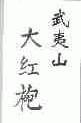 武夷山
大红袍